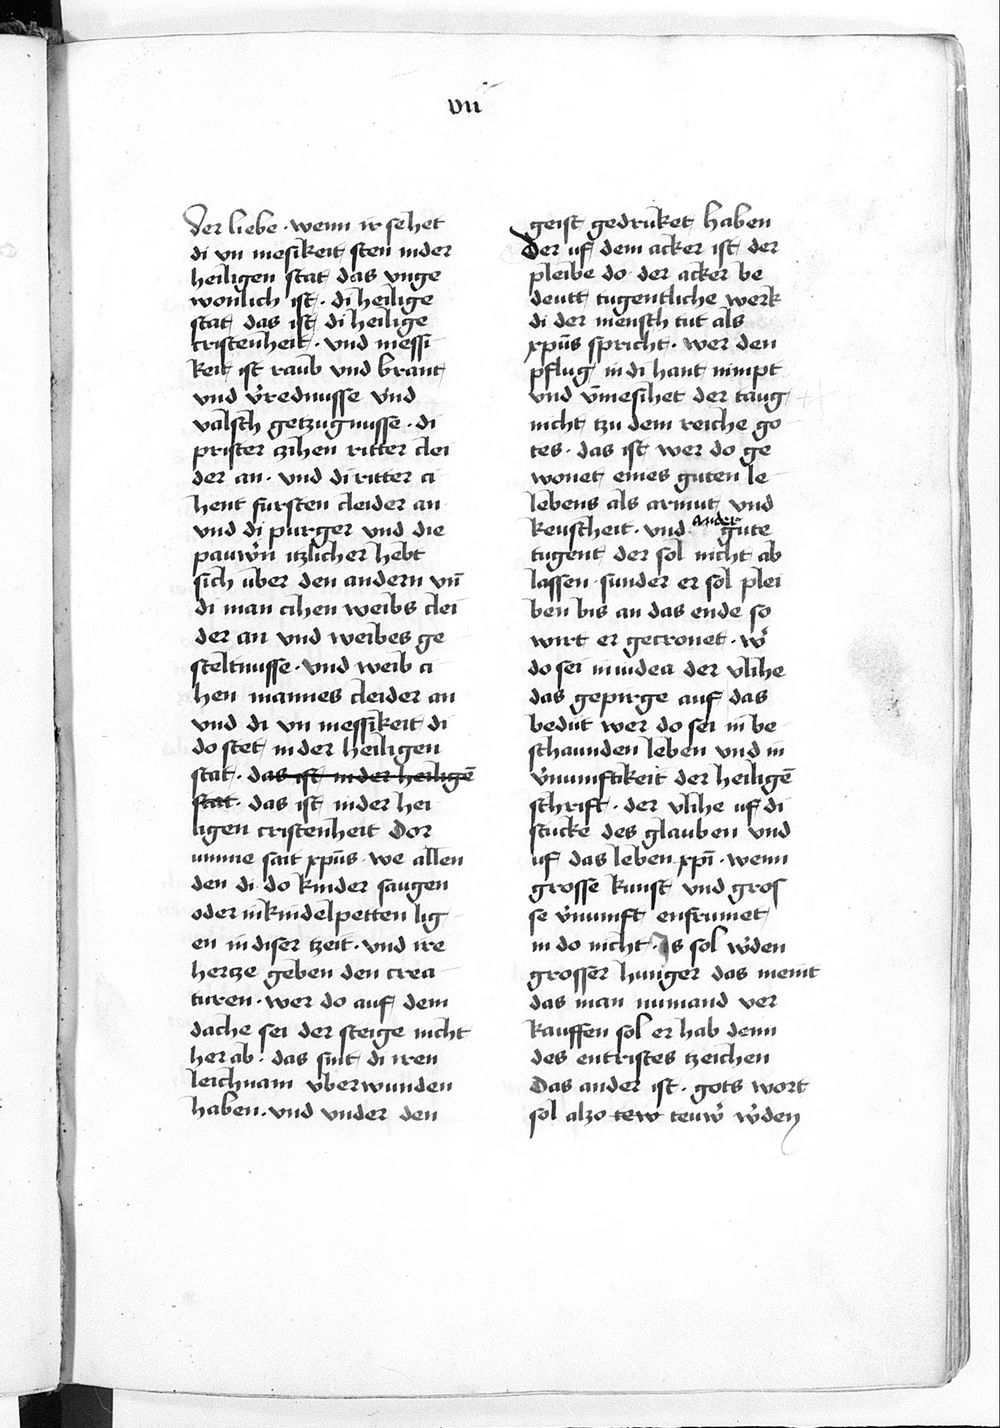 vii
der liebe · wenn ir sehet
di vn mesikeit sten in der
heiligen stat das vnge
wonlich ist · di heilige
stat das ist di heilige
cristenheit · vnd messi
keit ist raub vnd brant
vnd v̉rednusse vnd
valsch getzugnusse · di
prister czihen ritter clei
der an · vnd di ritter ci
hent fursten cleider an
vnd di purger vnd die
pauwr̉n itzlicher hebt
sich uber den andern vn̄
di man cihen weibs clei
der an vnd weibes ge
steltnusse · vnd weib ci
hen mannes cleider an
vnd di vn messikeit di
do stet in der heiligen
stat · das ist in der heiligē
stat · das ist in der hei
ligen cristenheit Dor
umme sait xpūs · we allen
den di do kinder saugen
oder in kindelpetten lig
en in diser tzeit · vnd ire
hertze geben den crea
turen · wer do auf dem
dache sei der steige nicht
her ab · das sint di iren
leichnam vberwunden
haben · vnd vnder den
geist gedruket haben
Der uf dem acker ist der
pleibe do der acker be
deutt tugentliche werk
di der mensch tut als
xpūs spricht · wer den
pflug in di hant nimpt
vnd v̉mesihet der taug
nicht tzu dem reiche go
tes · das ist wer do ge
wonet eines guten le
lebens als armut vnd
keuscheit · vnd ander gute
tugent der sol nicht ab
lassen sunder er sol plei
ben bis an das ende so
wirt er gecronet · w̉
do sei in iudea der vlihe
das gepirge auf das
bedut wer do sei in be
schaunden leben vnd in
v̉nunftikeit der heiligē
schrift · der vlihe uf di
stucke des glauben vnd
uf das leben xpī · wenn
grosse kunst vnd gros
se v̉nunft enfrumet
in do nicht · Is sol w̉den
grosser hunger das meint
das man nimand ver
kauffen sol er hab denn
des entristes tzeichen
Das ander ist · gots wort
sol alzo tew teuw̉ w̉den